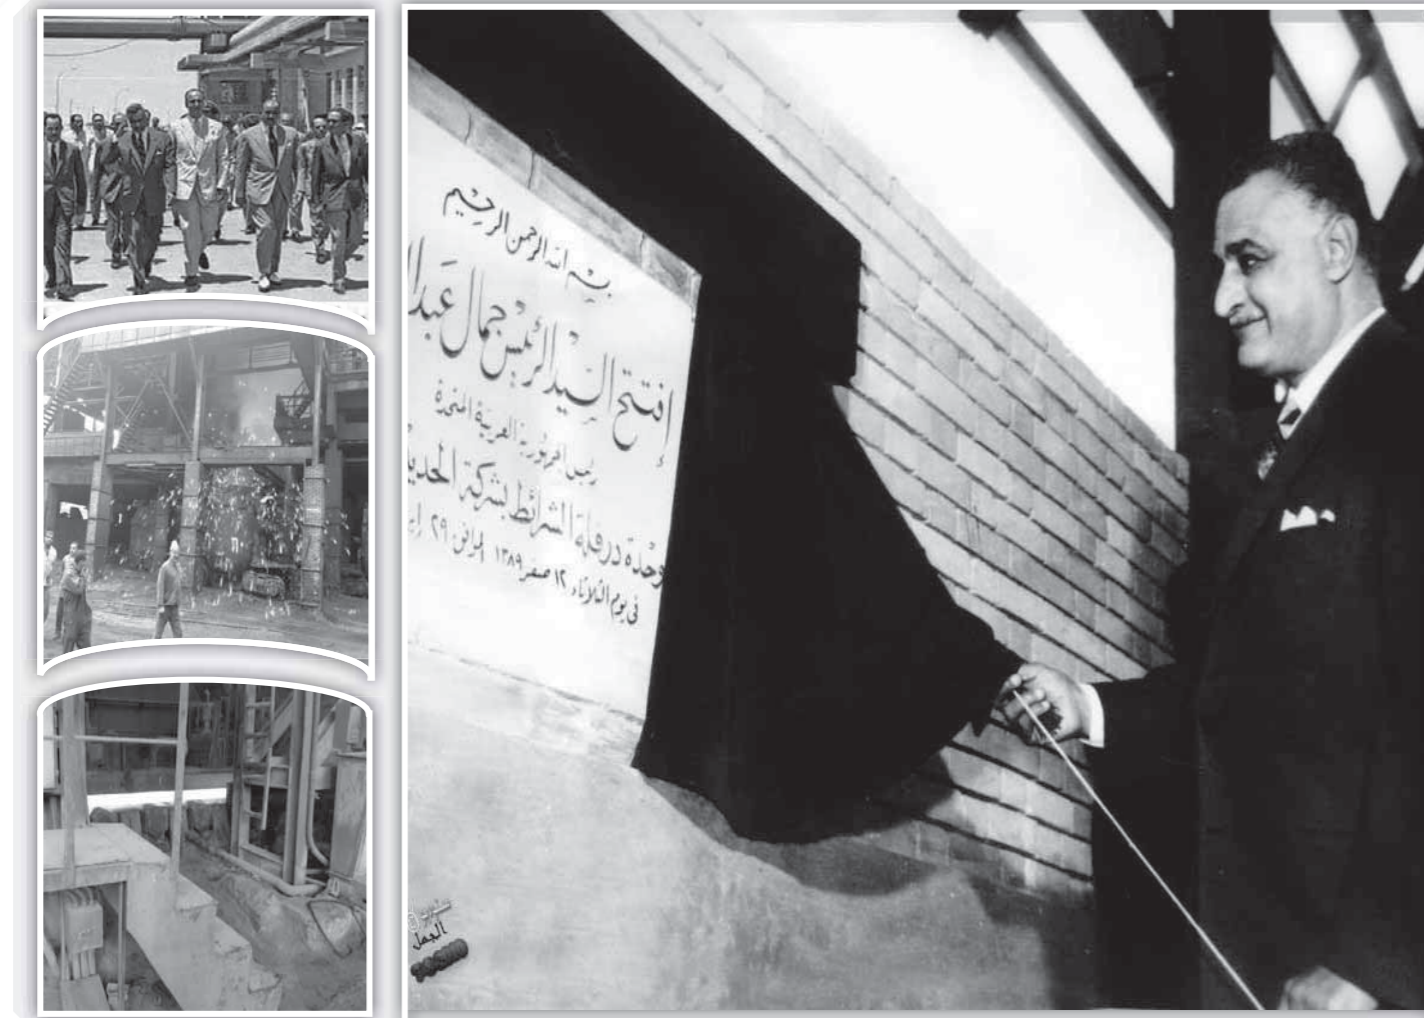 بسم الله الرحمن الرحيم
افتتح السيد الرئيس جمال عبد
رئيس الجمهورية العربية المتحدة
وحدة درفلة الشرائط بشركة الحديد
في يوم الثلاثاء ١٢ صفر ١٣٨٩ الموافق ٢٩
الجمل